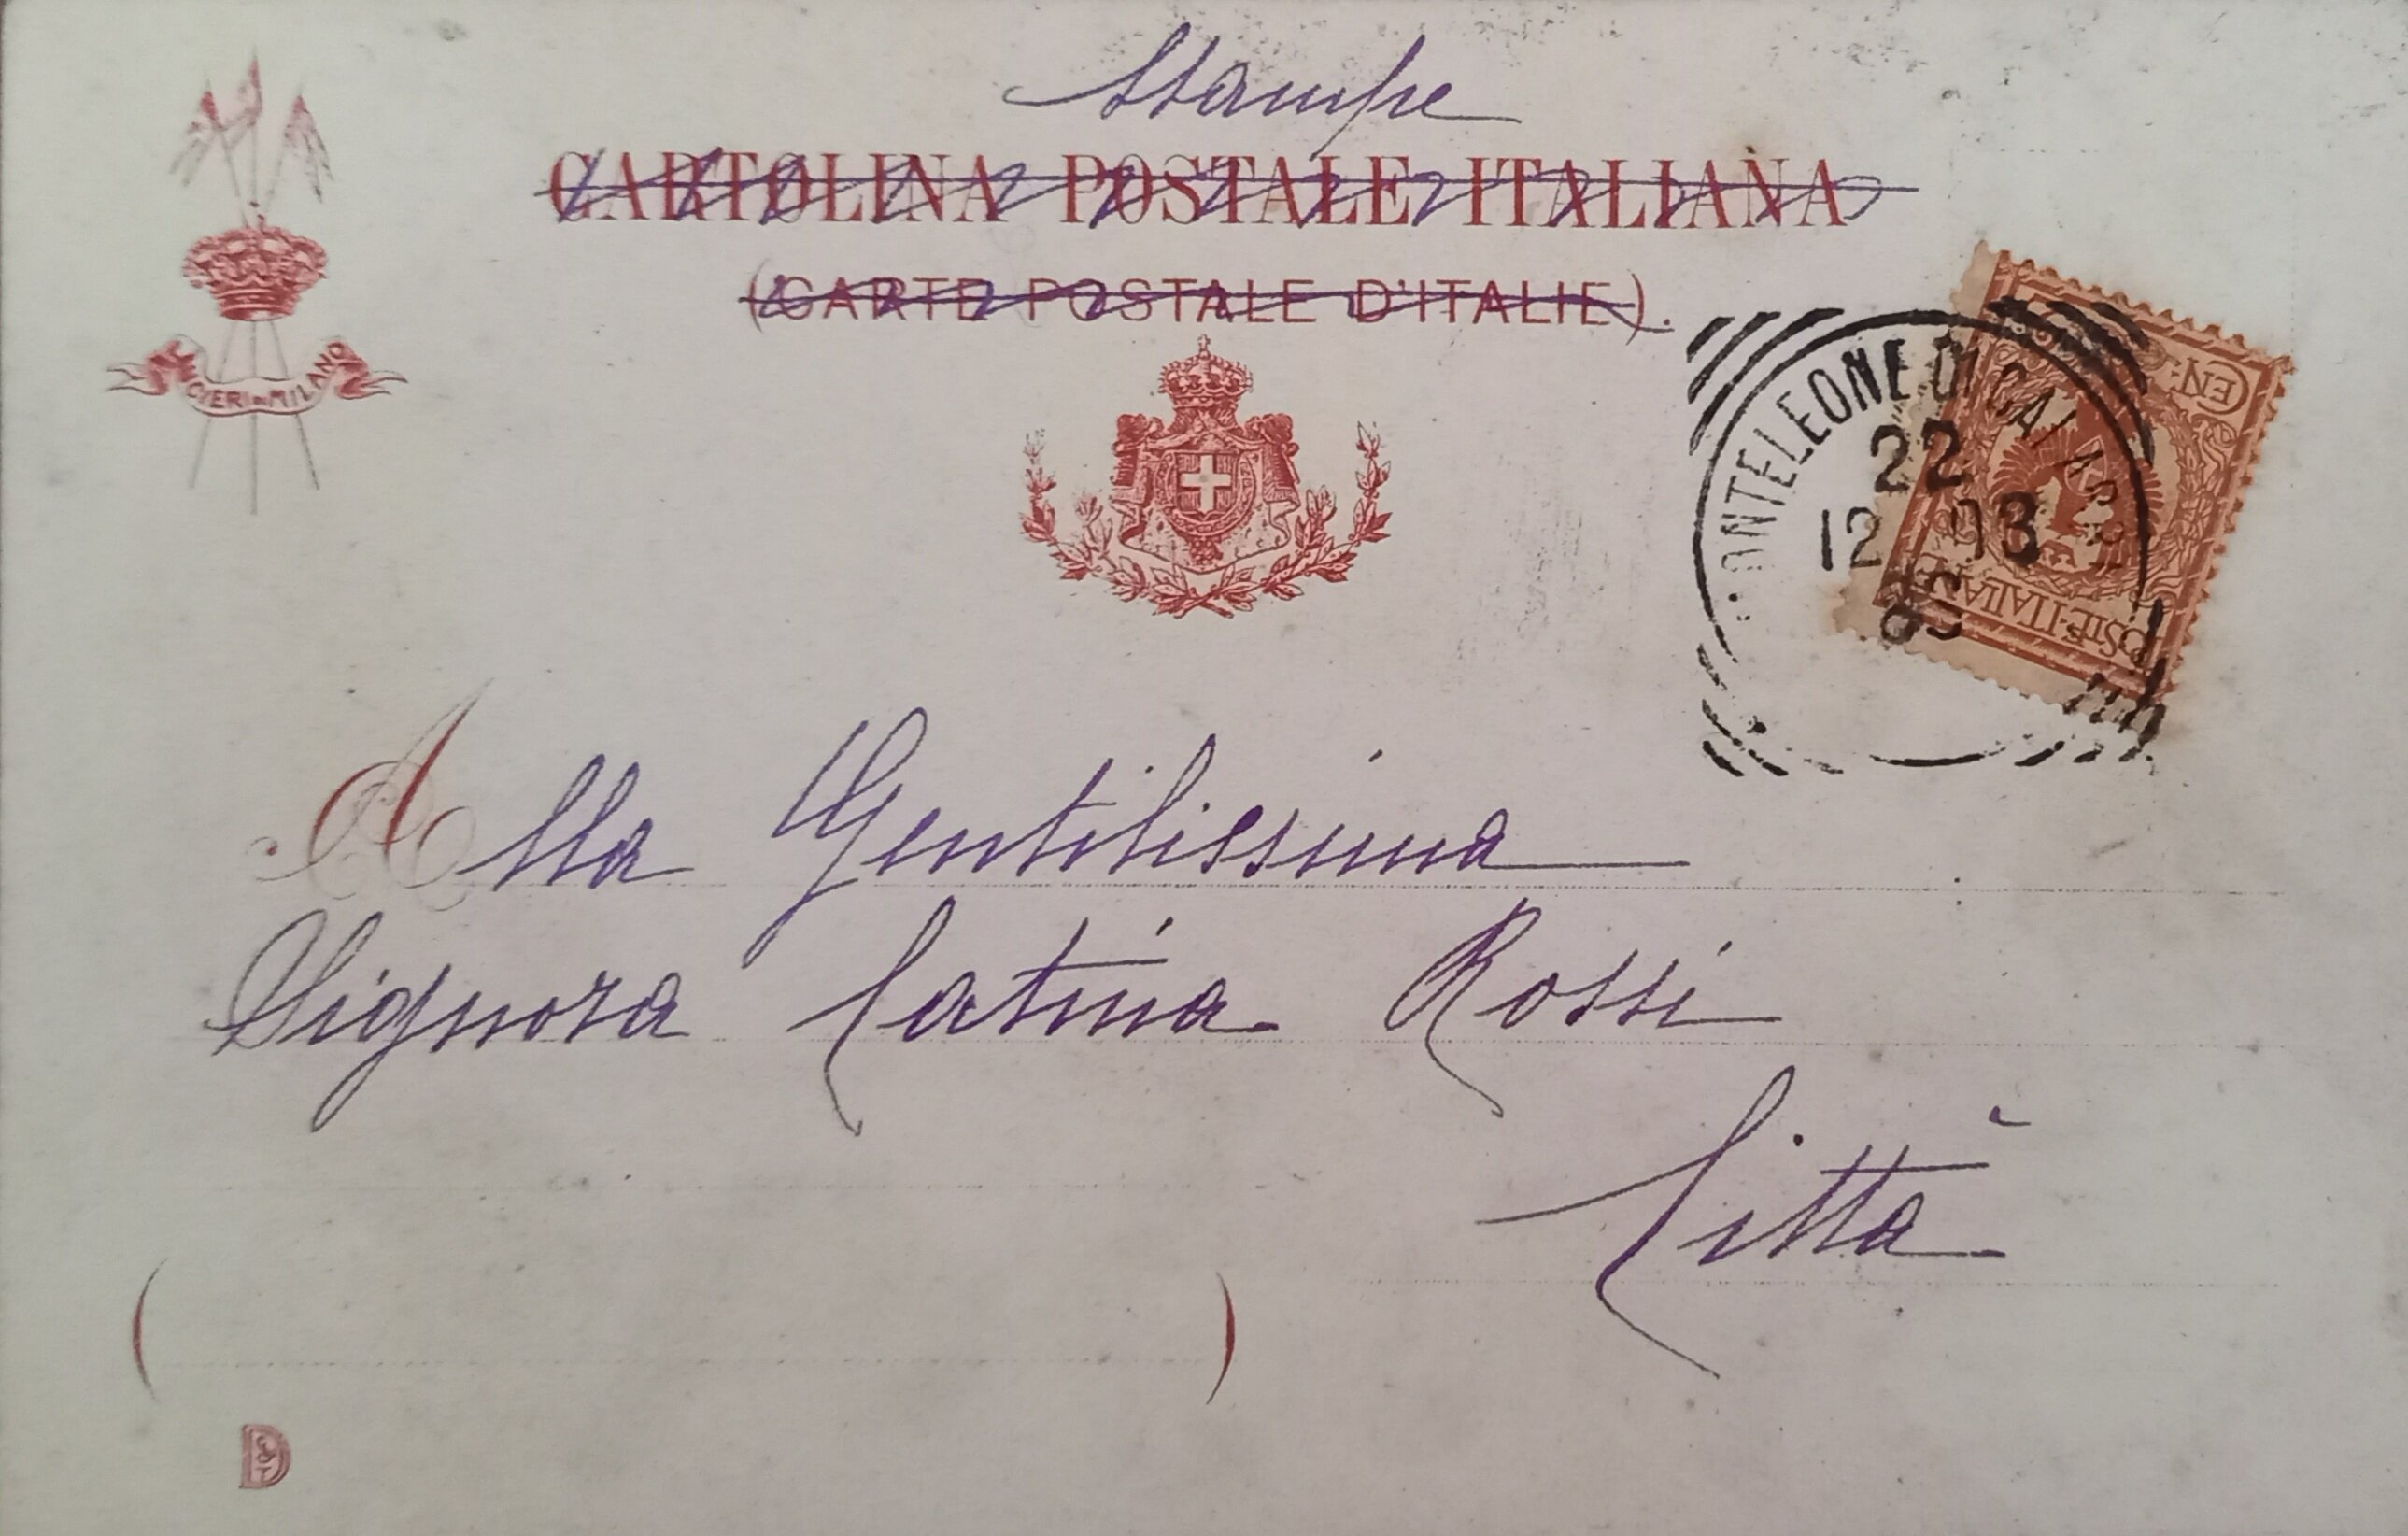 Stampe
CARTOLINA POSTALE ITALIANA
(CARTE POSTALE D'ITALIE).
MILANO
ONTELEONE DI CAL
22
12 03
EN
Alla Gentilissima
Signora Catina Rossi
Città
D